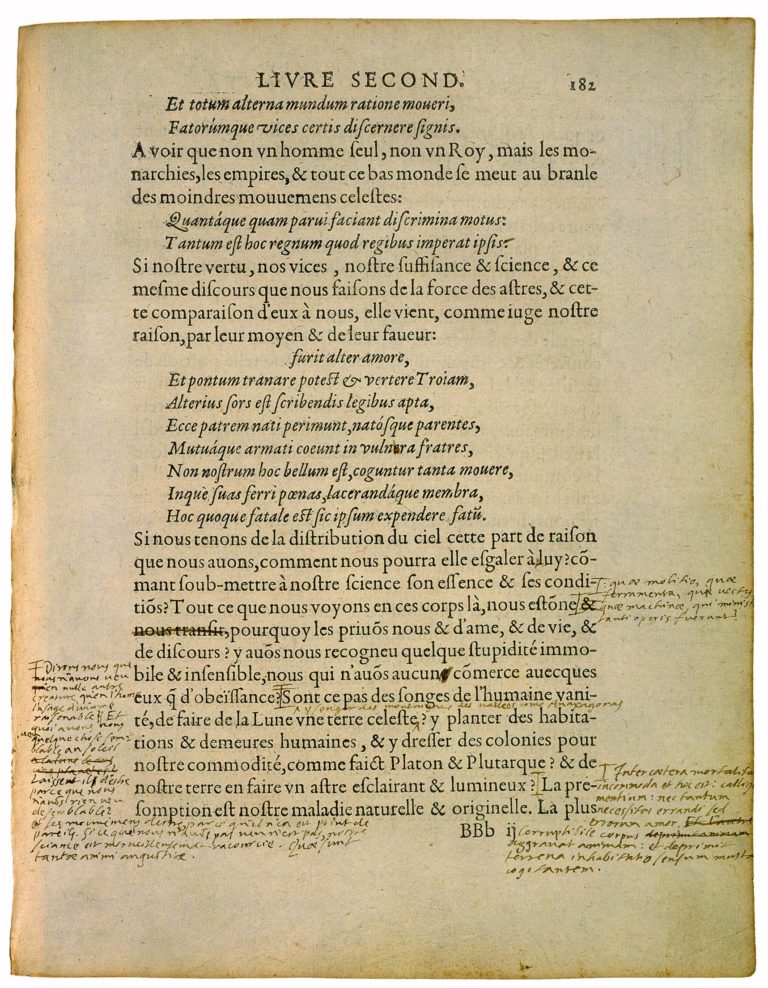 LIVRE SECOND. 182
Et totum alterna mundum ratione moueri,
Fatorúmque vices certis discernere signis.
A voir que non vn homme seul, non vn Roy, mais les mo-
narchies, les empires, & tout ce bas monde se meut au branle
des moindres mouuemens celestes:
Quantáque quam parui faciant discrimina motus:
Tantum est hoc regnum quod regibus imperat ipsis:
Si nostre vertu, nos vices, nostre suffisance & science, & ce
mesme discours que nous faisons de la force des astres, & cet-
te comparaison d'eux à nous, elle vient, comme iuge nostre
raison, par leur moyen & de leur faueur:
furit alter amore,
Et pontum tranare potest & vertere Troiam,
Alterius sors est scribendis legibus apta,
Ecce patrem nati perimunt, natósque parentes,
Mutuáque armati coeunt in vulnera fratres,
Non nostrum hoc bellum est, coguntur tanta mouere,
Inque suas ferri pœnas, lacerandáque membra,
Hoc quoque fatale est sic ipsum expendere fatū.
Si nous tenons de la distribution du ciel cette part de raison
que nous auons, comment nous pourra elle esgaler à luy? cō-
mant soub-mettre à nostre science son essence & ses condi-
tiōs? Tout ce que nous voyons en ces corps là, nous estōne &
nous transit, pourquoy les priuōs nous & d'ame, & de vie, &
de discours? y auōs nous recogneu quelque stupidité immo-
bile & insensible, nous qui n'auōs aucun cōmerce auecques
eux q̄ d'obeïssance? Sont ce pas des songes de l'humaine vani-
té, de faire de la Lune vne terre celeste? y planter des habita-
tions & demeures humaines, & y dresser des colonies pour
nostre commodité, comme faict Platon & Plutarque? & de
nostre terre en faire vn astre esclairant & lumineux? La pre-
somption est nostre maladie naturelle & originelle. La plus
BBb ij
quæ molitio, quæ
ferramenta, qui vectes
quæ machinæ, qui minist
tanti operis fuerunt
Dirons nous que
nous n'auons veu
qu'en nulle autre
creature qu'en l'home
usage d'une ame
rasonable? Et
quoi auons nous
quelque chose sem-
blable au soleil
Laisse il d'estre
parce que nous
n'auons rien veu
de semblable?
et ses mouuemens d'estre parce qu'il n'en est point de
pareils. Si ce que nous n'auons pas veu n'est pas nostre
sciance est merueilleusemant raccourcie. Quæ sunt
tantæ animi angustiæ.
Inter cætera mortalitatis
incommoda et hoc est: caligo
mentium: nec tantum
necessitas errandi sed
errorum amor.
Corruptibile corpus
aggrauat animam: et deprimit
terrena inhabitatio sensum multa
cogitantem.